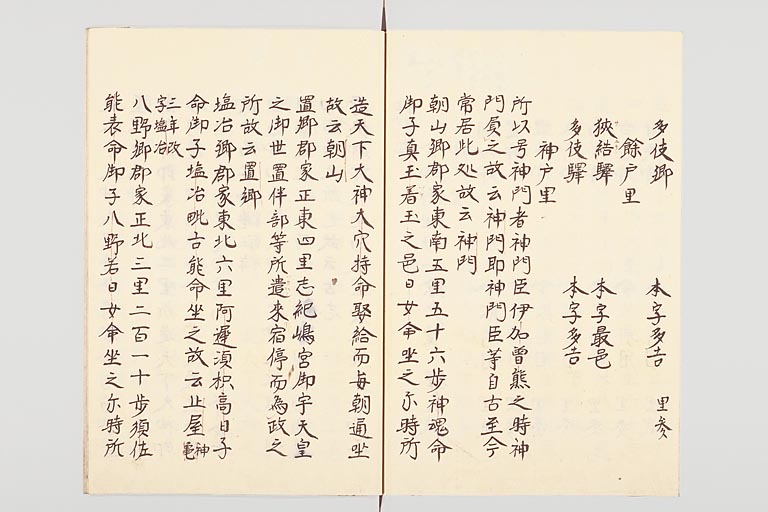 多伎郷 本字多吉 里参
餘戸里
狭結驛 本字最邑
多伎驛 本字多吉
神戸里
所以号神門者神門臣伊加曽熊之時神
門負之故云神門即神門臣等自古至今
常居此処故云神門
朝山郷郡家東南五里五十六歩神魂命
御子真玉着玉之邑日女命坐之尓時所
造天下大神大穴持命娶給而毎朝通坐
故云朝山
置郷郡家正東四里志紀嶋宮御宇天皇
之御世置伴部等所遣来宿停而為政之
所故云置郷
塩冶郷郡家東北六里阿遅須枳高日子
命御子塩冶毗古能命坐之故云止屋神亀
三年改字塩冶
八野郷郡家正北三里二百一十歩須佐
能表命御子八野若日女命坐之尓時所